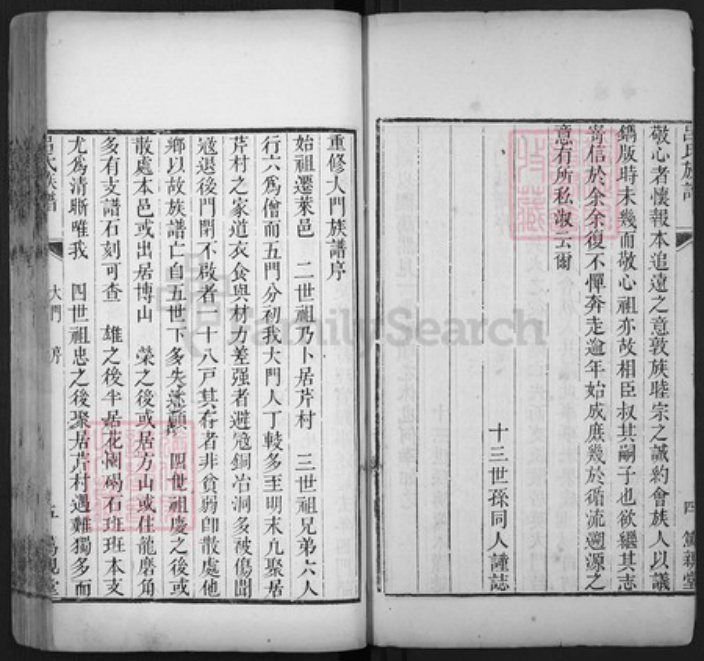 呂氏族譜
四
篤親堂
敬心者懷報本追遠之意敦族睦宗之誠約會族人以議
鐫版時未幾而敬心祖亦故相臣叔其嗣子也欲繼其志
寄信於余余復不憚奔走逾年始成庶幾於循流遡源之
意有所私淑云爾
十三世孫同人謹誌
重修大門族譜序
始祖遷萊邑 二世祖乃卜居芹村 三世祖兄弟六人
行六為僧而五門分初我大門人丁較多至明末凡聚居
芹村之家道衣食與材力差强者避寇銅冶洞多被傷聞
寇退後門閉不啟者 十八戸其存者非貧弱卽散處他
鄉以故族譜亡自五世下多失 四世祖慶之後或
散處本邑或出居博山 榮之後或居方山或住龍磨角
多有支譜石刻可查 雄之後半居花園碣石班班本支
尤為清晰唯我 四世祖忠之後聚居芹村遇難獨多而
呂氏族譜
大門 序
五
篤親堂
FamilySearch